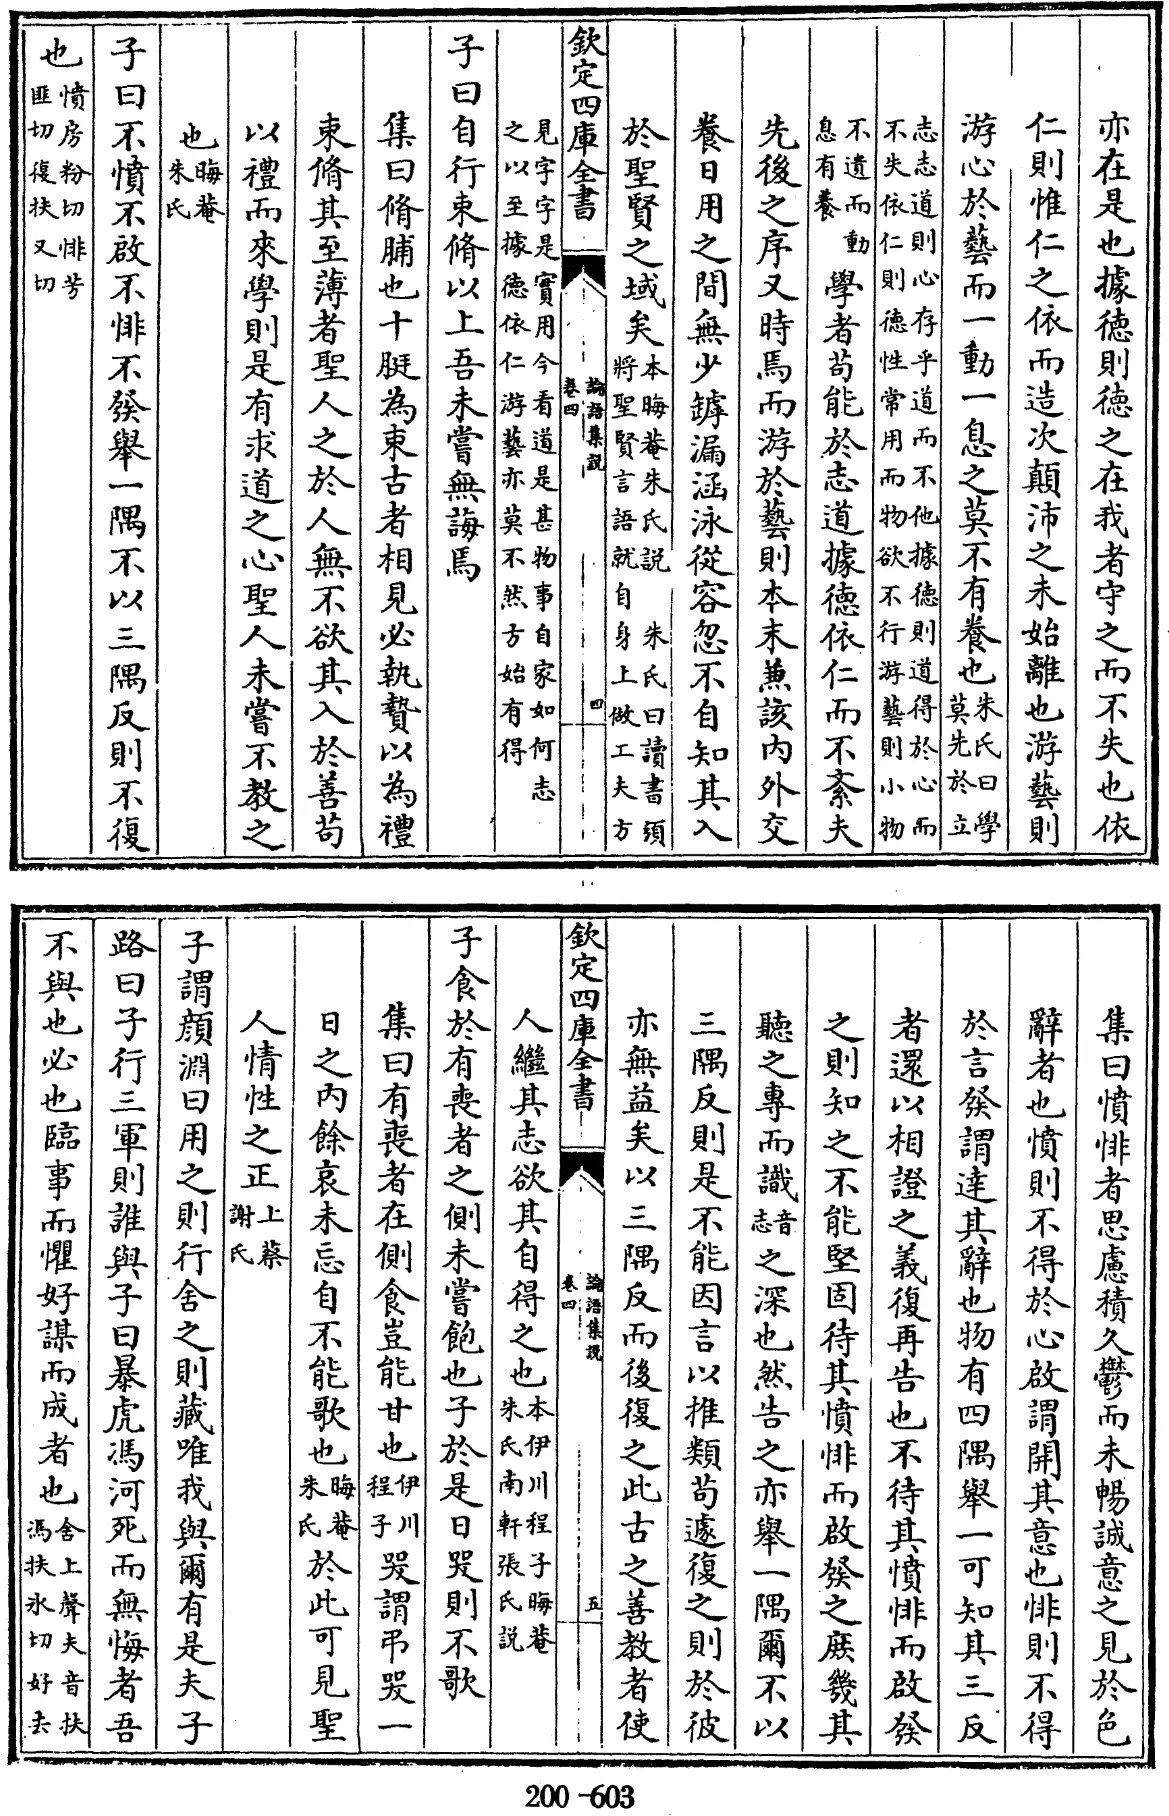 亦在是也據德則德之在我者守之而不失也依
仁則惟仁之依而造次顛沛之未始離也游藝則
游心於藝而一動一息之莫不有養也朱氏曰學莫先於立
志志道則心存乎道而不他據德則道得於心而不失依仁則德性常用而物欲不行游藝則小物
不遺而動息有養學者苟能於志道據德依仁而不紊夫
先後之序又時焉而游於藝則本末兼該內外交
養日用之間無少罅漏涵泳從容忽不自知其入
於聖賢之域矣本晦菴朱氏説 朱氏曰讀書須將聖賢言語就自身上做工夫方
欽定四庫全書
論語集說
卷四
四
見字字是實用今看道是甚物事自家如何志之以至據德依仁游藝亦莫不然方始有得
子曰自行束脩以上吾未嘗無誨焉
集曰脩脯也十脡為束古者相見必執贄以為禮
束脩其至薄者聖人之於人無不欲其入於善苟
以禮而來學則是有求道之心聖人未嘗不教之
也晦菴朱氏
子曰不憤不啟不悱不發舉一隅不以三隅反則不復
也憤房粉切悱芳匪切復扶又切
集曰憤悱者思慮積久鬱而未暢誠意之見於色
辭者也憤則不得於心啟謂開其意也悱則不得
於言發謂達其辭也物有四隅舉一可知其三反
者還以相證之義復再告也不待其憤悱而啟發
之則知之不能堅固待其憤悱而啟發之庶幾其
聽之專而識音志之深也然告之亦舉一隅爾不以
三隅反則是不能因言以推類苟遽復之則於彼
亦無益矣以三隅反而後復之此古之善教者使
欽定四庫全書
論語集說
卷四
五
人繼其志欲其自得之也本伊川程子晦菴朱氏南軒張氏説
子食於有喪者之側未嘗飽也子於是日哭則不歌
集曰有喪者在側食豈能甘也伊川程子哭謂弔哭一
日之內餘哀未忘自不能歌也晦菴朱氏於此可見聖
人情性之正上蔡謝氏
子謂顏淵曰用之則行舍之則藏唯我與爾有是夫子
路曰子行三軍則誰與子曰暴虎馮河死而無悔者吾
不與也必也臨事而懼好謀而成者也舍上聲夫音扶馮扶氷切好去
200-603